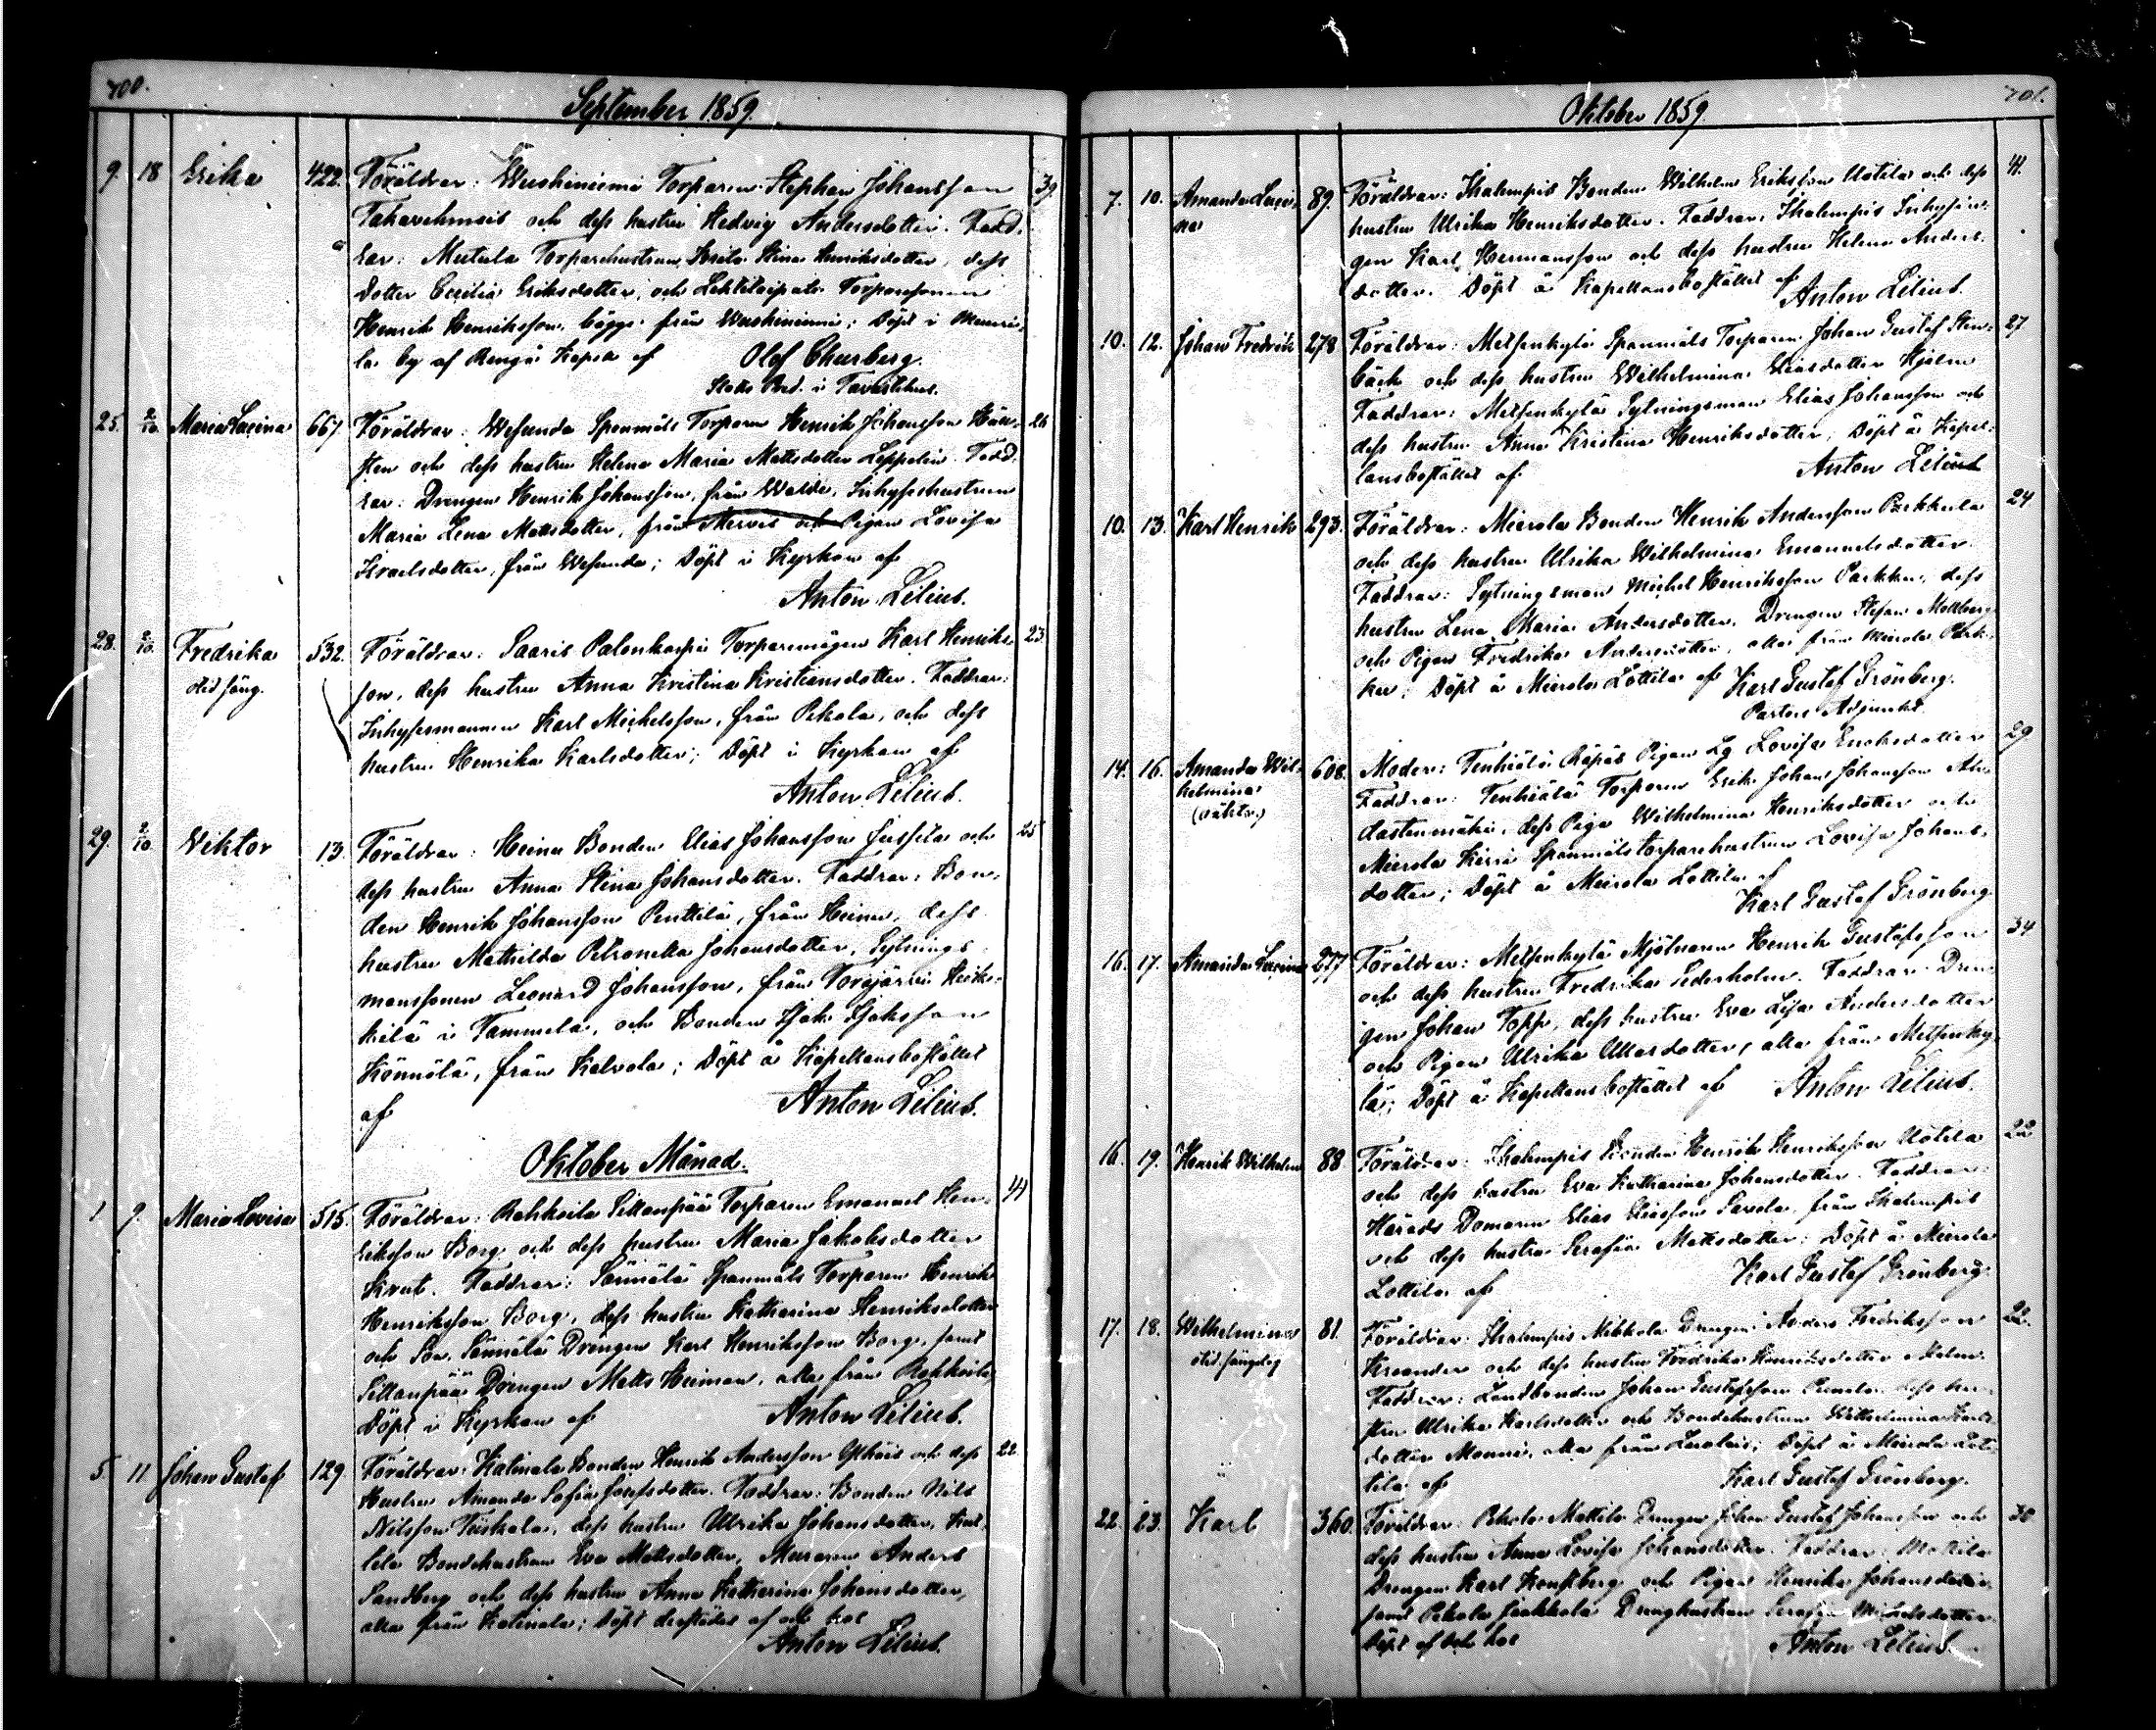 700.
September 1859.
9. 18 Erika 422. Föräldrar: Torparen Stephan Johansson 39
och dess hustru Hedvig Andersdotter. Fadd-
rar: Torparehustrun Stina Henriksdotter, dess
dotter Cecilia Eriksdotter, och Torparesonen
Henrik Henriksson, bägge från ; Döpt i
la by af Rengå af Olof Churberg.
Pred. i Tavastehus.
25. 2/10 Maria Lucina 667. Föräldrar: Wesunda Spanmåls Torparen Henrik Johansson 26
sten och dess hustru Helena Maria Mattsdotter Leppelin. Fadd-
rar: Drengen Henrik Johansson, från Inhyseshustrun
Maria Lena Mattsdotter, från och Pigan Lovisa
Israelsdotter, från Wesunda; Döpt i Kyrkan af
Anton Lilius.
28. 2/10 Fredrika 532. Föräldrar: Saaris Torparemågen Karl Henriks- 23
son, dess hustru Anna Kristina Kristiansdotter. Faddrar:
Inhysesmannen Karl Mickelsson, från Pekola, och dess
hustru Henrika Karlsdotter; Döpt i Kyrkan af
Anton Lilius.
29. 2/10 Viktor 13. Föräldrar: Heinu Bonden Elias Johansson Jussila och 25
dess hustru Anna Stina Johansdotter. Faddrar: Bon-
den Henrik Johansson Penttilä, från Heinu, dess
hustru Mathilda Petronella Johansdotter, Sytnings-
manssonen Leonard Johansson, från Torajärvi
kilä i Tammela, och Bonden Isak Isaksson
Könnölä, från Kalvola; Döpt å Kapellansbostället
af Anton Lilius.
Oktober Månad.
1 9. Maria Lovisa 515. Föräldrar: Rahkoila Sillanpää Torparen Emanuel 41
Eriksson Borg och dess hustru Maria Jakobsdotter
Krut. Faddrar: Sännälä Spanmåls Torparen Henrik
Henriksson Borg, dess hustru Katharina Henriksdotter
och Son, Sännälä Drengen Karl Henriksson Borg, samt
Sillanpää Drengen Matts Heiman, alla från Rahkoila;
Döpt i Kyrkan af Anton Lilius.
5 11 Johan Gustaf 129. Föräldrar: Katinala Bonden Henrik Andersson och dess 22
Hustru Amanda Sofia Josefsdotter. Faddrar: Bonden Nils
Nilsson dess hustru Ulrika Johansdotter,
Bondehustrun Eva Mattsdotter, Muraren Anders
Sandberg och dess hustru Anna Katharina Johansdotter,
alla från Katinala; Döpt derstädes af och hos
Anton Lilius.
701.
Oktober 1859.
7. 10. Amanda Luci- 89. Föräldrar: Ihalempis Bonden Wilhelm Eriksson Uotila och dess 41.
na hustru Ulrika Henriksdotter. Faddrar: Ihalempis
gen Karl Hermansson och dess hustru Helena Anders-
dotter. Döpt å Kapellansbostället af Anton Lilius.
10. 12. Johan Fredrik 278 Föräldrar: Metsenkylä Spanmåls Torparen Johan Gustaf Sten- 27
bäck och dess hustru Wilhelmina Eliasdotter Hjelm
Faddrar: Metsenkylä Sytningsman Elias Johansson och
dess hustru Anna Kristina Henriksdotter; Döpt å Kapel-
lansbostället af Anton Lilius
10. 13. Karl Henrik 293. Föräldrar: Mierola Bonden Henrik Andersson 24
och dess hustru Ulrika Wilhelmina Emanuelsdotter.
Faddrar: Sytningsman Michel Henriksson dess
hustru Lena Maria Andersdotter, Drengen Stefan Mollberg
och Pigan Fredrika Andersdotter, alla från Mierola
Döpt å Mierola Lottila af Karl Gustaf Grönberg.
Pastors Adjunkt.
14. 16. Amanda Wil- 608. Moder: Tenhiälä Pigan Lovisa Enoksdotter 29
helmina Faddrar: Tenhiälä Torparen Erik Johan Johansson
dess Piga Wilhelmina Henriksdotter och
Mierola Spanmålstorparehustrun Lovisa Johans-
dotter; Döpt å Mierola Lottila af
Karl Gustaf Grönberg
16. 17. Amanda Lucina 277 Föräldrar: Metsenkylä Mjölnaren Henrik Gustafsson 34
och dess hustru Fredrika Sederholm. Faddrar: Dren-
gen Johan Topp, dess hustru Eva Lisa Andersdotter
och Pigan Ulrika alla från Metsenky-
lä; Döpt å Kapellansbostället af Anton Lilius.
16. 19. Henrik Wilhelm 88. Föräldrar: Ihalempis Bonden Henrik Henriksson Uotila 22
och dess hustru Eva Katharina Johansdotter. Faddrar:
Härads Domaren Elias Eliasson från Ihalempis
och dess hustru Serafia Mattsdotter; Döpt å Mierola
Lottila af Karl Gustaf Grönberg.
17. 18. Wilhelmina 81. Föräldrar: Ihalempis Mikkola Drengen Anders Fredriksson 22.
och dess hustru Fredrika Henriksdotter
Faddrar: Landbonden Johan Gustafsson dess hu-
stru Ulrika Karlsdotter och Bondehustrun Wilhelmina Karls-
dotter alla från Döpt å Mierola Lot-
tila af Karl Gustaf Grönberg.
22. 23. Karl 360. Föräldrar: Pekola Mattila Drengen Johan Gustaf Johansson och 30
dess hustru Anna Lovisa Johansdotter. Faddrar: Mattila
Drengen Karl och Pigan Henrika Johansdotter
samt Pekola Drenghustrun Serafia Michelsdotter
Döpt af och hos Anton Lilius.